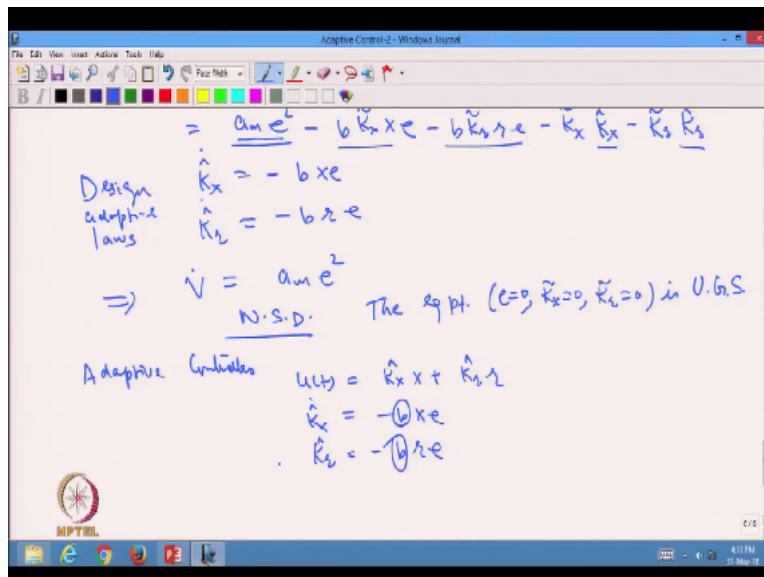 Adaptive Control-2 - Windows Journal
File Edit View Insert Actions Tools Help
Page Width
B I
= a_m e² - b K̃_x x e - b K̃_r r e - K̃_x K̂̇_x - K̃_r K̂̇_r
Design adaptive laws
K̂̇_x = - b x e
K̂̇_r = - b r e
⇒ V̇ = a_m e²
N.S.D. The eq pt. (e=0, K̃_x=0, K̃_r=0) is U.G.S
Adaptive Controller u(t) = K̂_x x + K̂_r r
K̂̇_x = - b x e
K̂̇_r = - b r e
NPTEL
6/6
4:11 PM
31-May-18